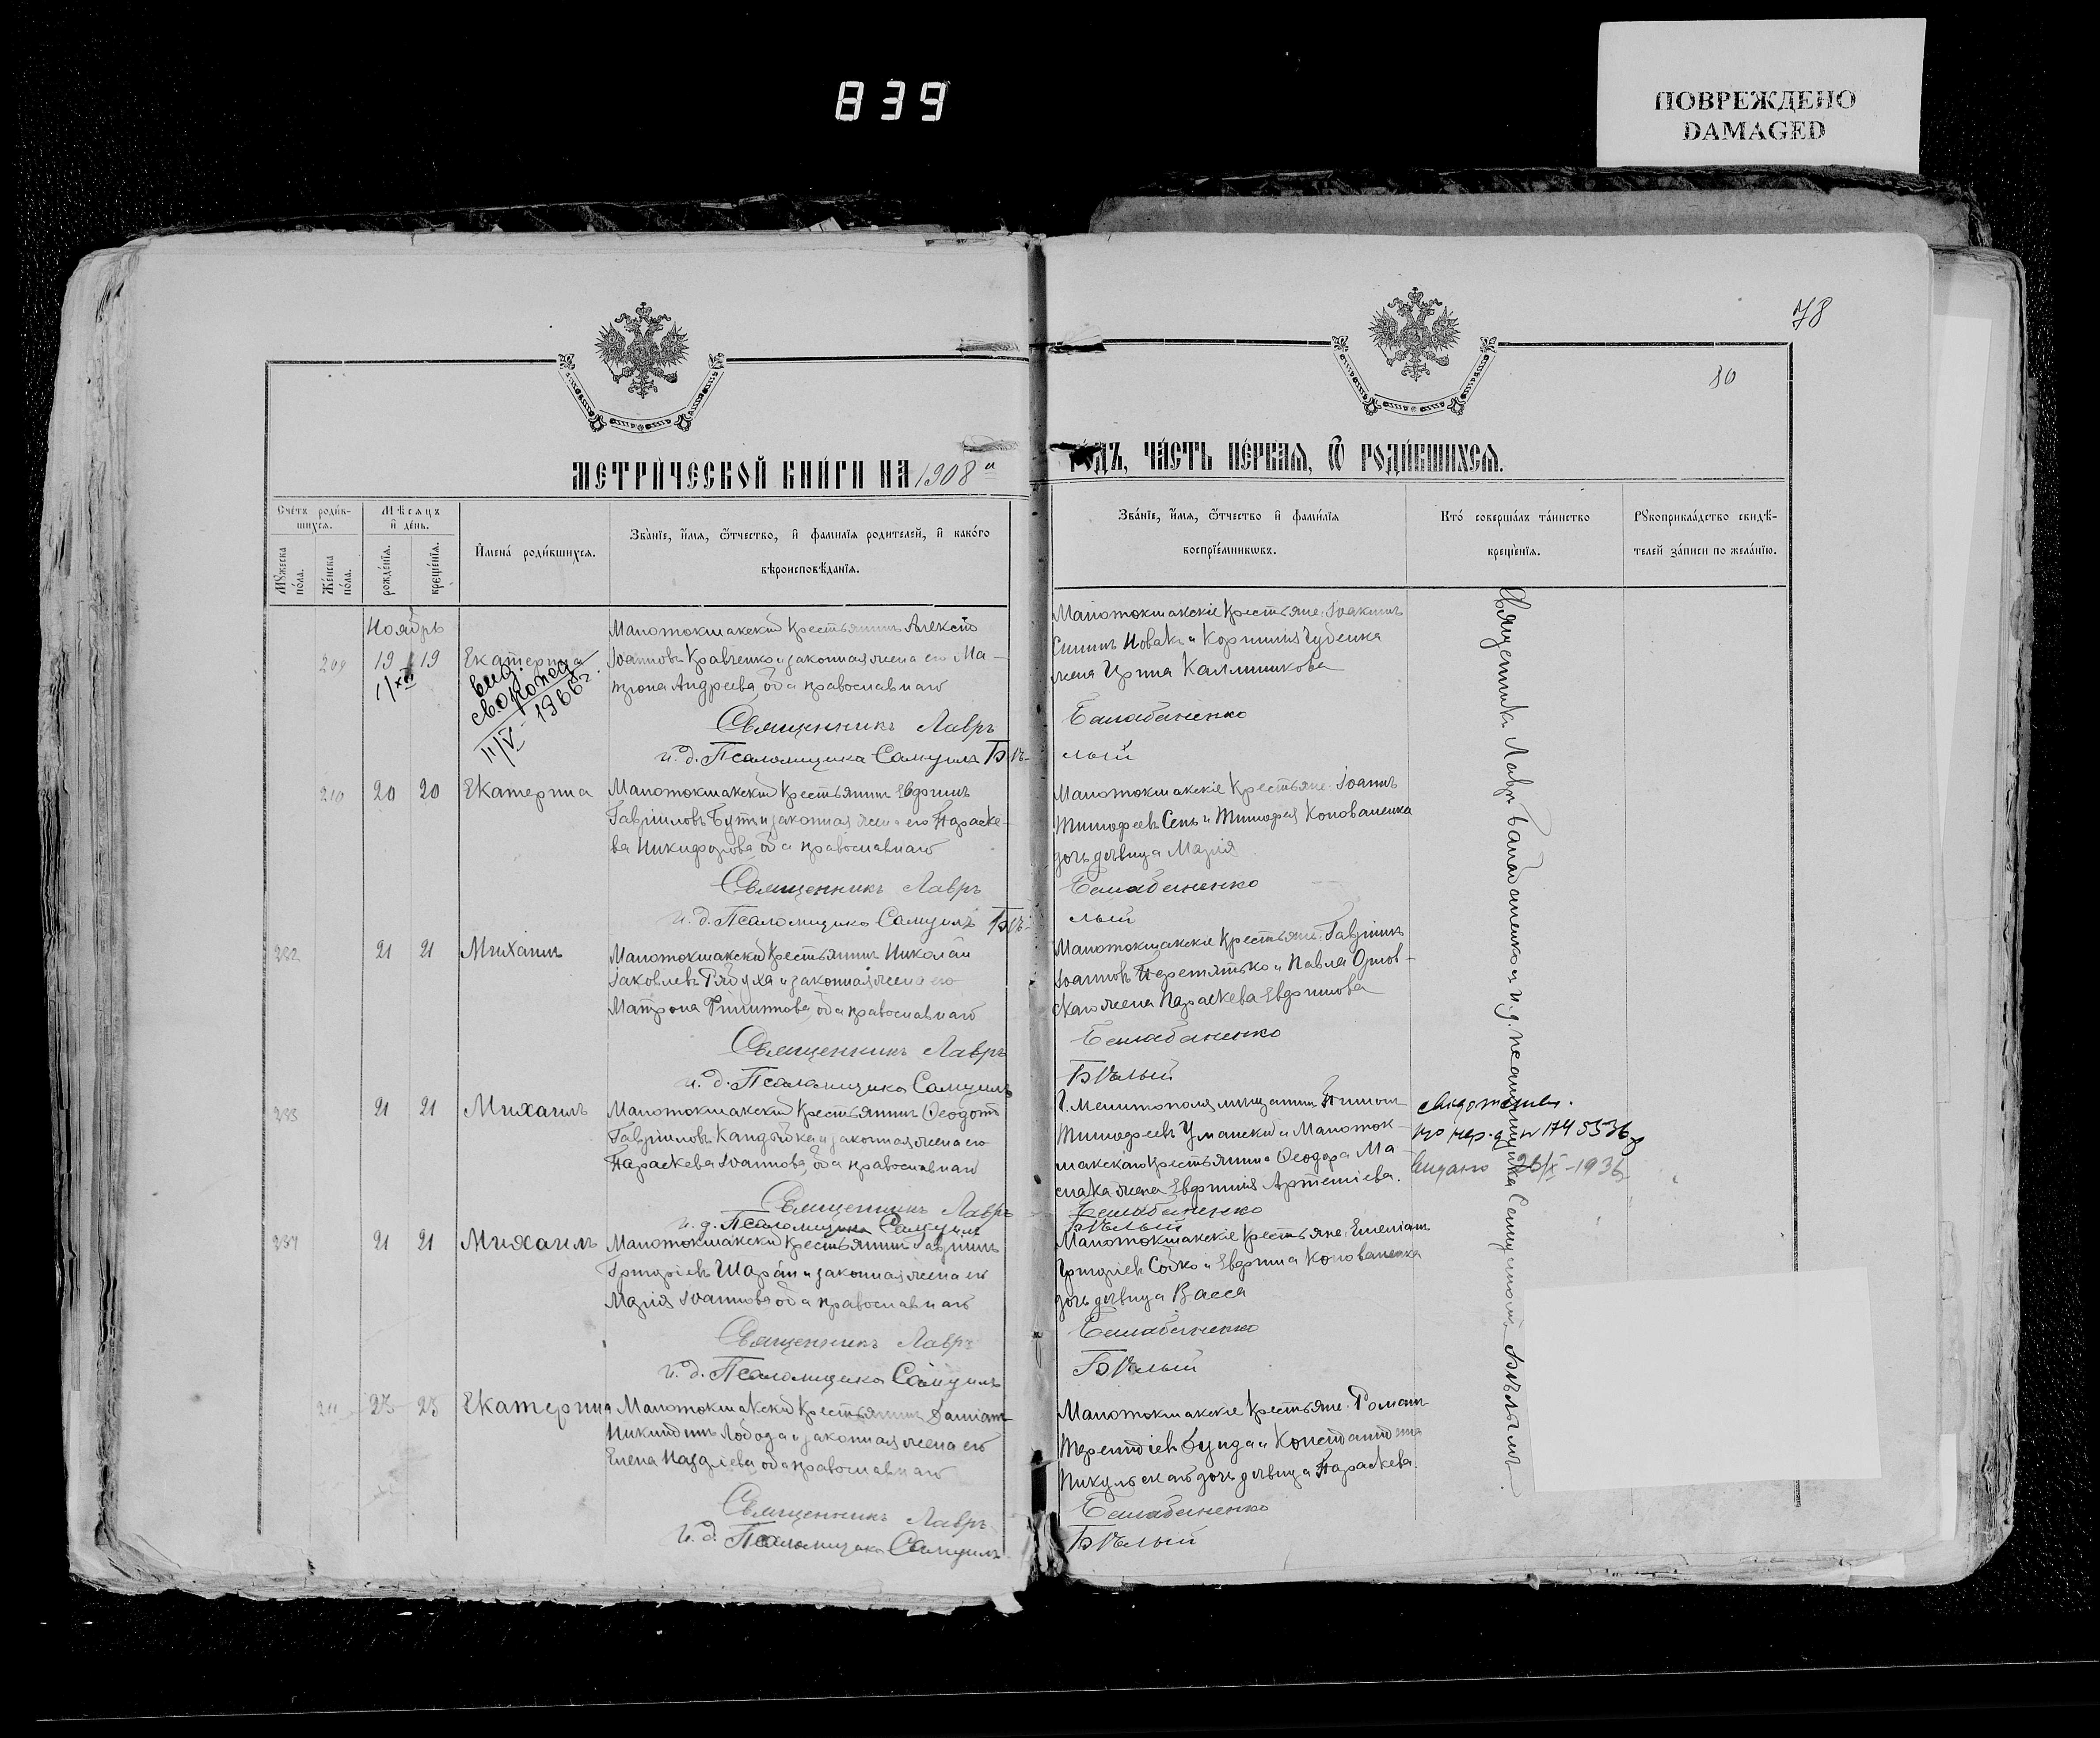 839
ПОВРЕЖДЕНО
DAMAGED
78
80
МЕТРИ́ЧЕСКОЙ КНИ́ГИ НА 1908 й
ГО́ДЪ, ЧА́СТЬ ПЕ́РВАЯ, Ѡ РОДИ́ВШИХСЯ.
Сче́тъ роди́в-
шихся.
Мѣ́сяцъ
и́ де́нь.
И́мена́ роди́вшихся.
Зва́нїе, и́мя, ѻ҆́тчество, и́ фами́лїя роди́телей, и́ како́гѡ
вѣроисповѣ́данїя.
Мꙋ́жеска
по́ла.
Же́нска
по́ла.
рожде́нїя.
креще́нїя.
Зва́нїе, и́мя, ѻ҆́тчество и́ фами́лїя
воспрїе́мникѡвъ.
Кто́ соверша́лъ та́инство
креще́нїя.
Рꙋкоприкла́дство свидѣ́-
телей за́писи по жела́нїю.
Ноябрь
209 19 19 Екатерина
1/XII
вид.
св. о рожд.
11/V - 1966 г.
Малотокмакскій крестьянинъ Алексѣй
Іоанновъ Кравченко и законная жена его Ма-
трона Андреева, оба православнаго
Священникъ Лавръ
и. д. Псаломщика Самуилъ Бѣ-
Малотокмакскіе крестьяне: Іоакимъ
Новакъ и Корнилія Губенка
жена Ирина Каллиникова
Балабаненко
лый
210 20 20 Екатерина
Малотокмакскій крестьянинъ Евфимъ
Гавріиловъ Бутъ и законная жена его Параске-
ва Никифорова, оба православнаго
Священникъ Лавръ
и. д. Псаломщика Самуилъ Бѣ-
Малотокмакскіе крестьяне: Іоаннъ
Тимофеевъ Сень и Тимофея Коноваленка
дочь дѣвица Марія
Балабаненко
лый
232 21 21 Михаилъ
Малотокмакскій крестьянинъ Николай
Іаковлевъ Рябуха и законная жена его
Матрона Филиппова, оба православнаго
Священникъ Лавръ
и. д. Псаломщика Самуилъ
Малотокмакскіе крестьяне: Гавріилъ
Іоанновъ Перетятько и Павла Орлов-
скаго жена Параскева Евфимова
Балабаненко
Бѣлый
233 21 21 Михаилъ
Малотокмакскій крестьянинъ Ѳеодотъ
Гавріиловъ Кандыбка и законная жена его
Параскева Іоаннова, оба православнаго
Священникъ Лавръ
и. д. Псаломщика Самуилъ
Г. Мелитополя мѣщанинъ
Тимофеевъ Уманскій и Малоток-
макскаго крестьянина Ѳеодора Ма-
слака жена Евфимія Артеміева.
Балабаненко
Бѣлый
№ 1745536
видано 26/X - 1936
234 21 21 Михаилъ
Малотокмакскій крестьянинъ Гавріилъ
Григоріевъ Шаранъ и законная жена его
Марія Іоаннова оба православнаго
Священникъ Лавръ
и. д. Псаломщика Самуилъ
Малотокмакскіе крестьяне: Емеліанъ
Григоріевъ Собко и Евфима Коноваленка
дочь дѣвица Васса
Балабаненко
Бѣлый
211 23 23 Екатерина
Малотокмакскій крестьянинъ Даміанъ
Никитинъ Лобода и законная жена его
Елена Назаріева оба православнаго
Священникъ Лавръ
и. д. Псаломщика Самуилъ
Малотокмакскіе крестьяне: Романъ
Терентіевъ и Константина
Пикульскаго дочь дѣвица Параскева.
Балабаненко
Бѣлый
Священникъ Лавръ Балабаненко и и. д. псаломщика Самуиломъ Бѣлымъ.